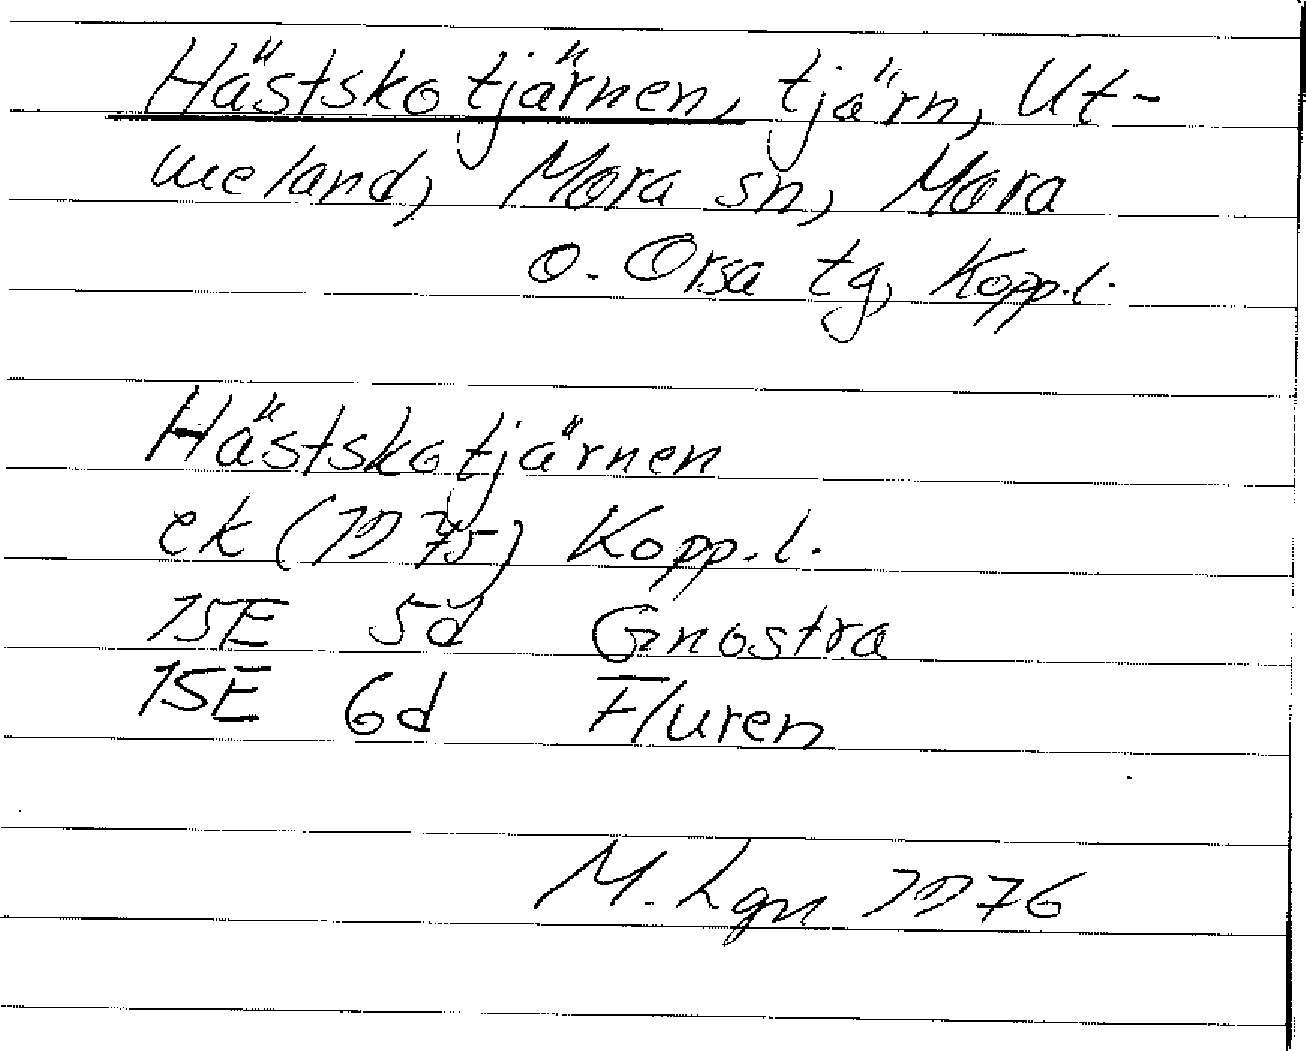 Hästskotjärnen, tjärn, Ut-
meland, Mora sn, Mora
o. Orsa tg, Kopp.l.
Hästskotjärnen
ek (1975) Kopp.l.
15E 5d Gnostra
15E 6d Fluren
M. Lgn 1976